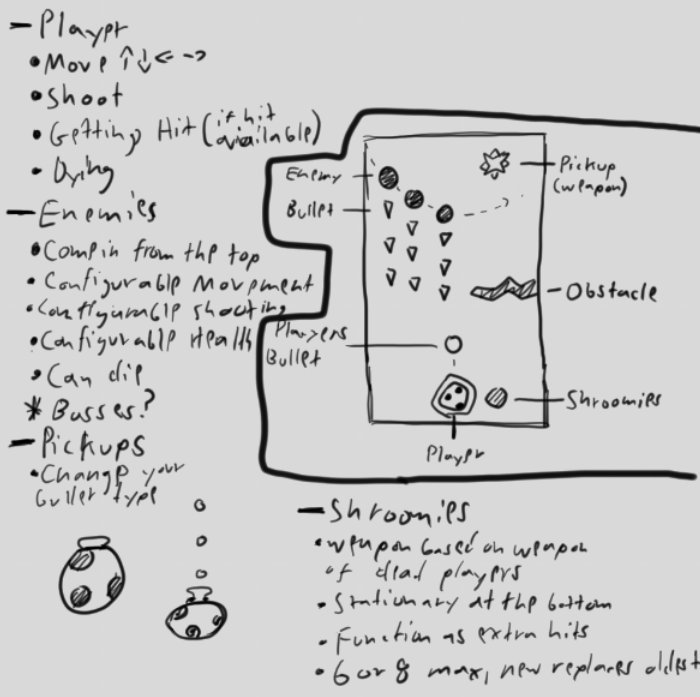 - Player
• Move ↑↓← →
• Shoot
• Getting Hit (if hit
available)
• Dying
- Enemies
• Come in from the top
• Configurable Movement
• Configurable shooting
• Configurable Health
• Can die
* Bosses?
- Pickups
• Change your
bullet type
Enemy
Bullet
Players
Bullet
Pickup
(weapon)
Obstacle
Shroomies
Player
- Shroomies
• weapon based on weapon
of dead players
• Stationary at the bottom
• Function as extra hits
• 6 or 8 max, new replaces oldest